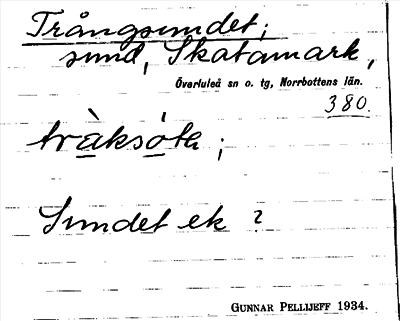 Trångsundet;
sund, Skatamark,
Överluleå sn o. tg, Norrbottens län.
380.
tràksota;
Sundet ek ?
GUNNAR PELLIJEFF 1934.